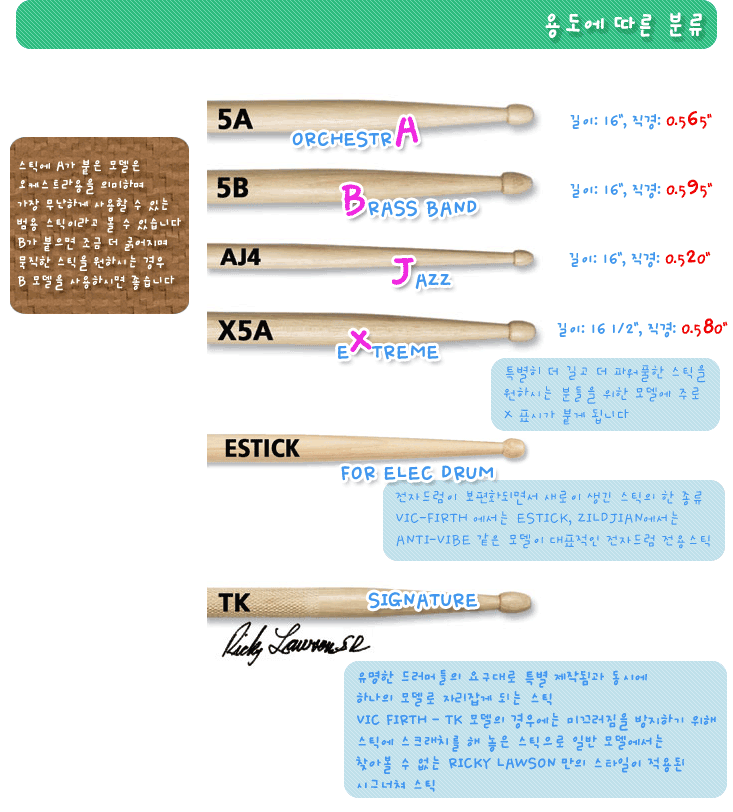 용도에 따른 분류
5A
ORCHESTRA
길이: 16", 직경: 0.565"
스틱에 A가 붙은 모델은
오케스트라용을 의미하며
가장 무난하게 사용할 수 있는
범용 스틱이라고 볼 수 있습니다
B가 붙으면 조금 더 굵어지며
묵직한 스틱을 원하시는 경우
B 모델을 사용하시면 좋습니다
5B
BRASS BAND
길이: 16", 직경: 0.595"
AJ4
JAZZ
길이: 16", 직경: 0.520"
X5A
EXTREME
길이: 16 1/2", 직경: 0.580"
특별히 더 길고 더 파워풀한 스틱을
원하시는 분들을 위한 모델에 주로
X 표시가 붙게 됩니다
ESTICK
FOR ELEC DRUM
전자드럼이 보편화되면서 새로이 생긴 스틱의 한 종류
VIC-FIRTH 에서는 ESTICK, ZILDJIAN에서는
ANTI-VIBE 같은 모델이 대표적인 전자드럼 전용스틱
TK
SIGNATURE
Ricky Lawson SR
유명한 드러머들의 요구대로 특별 제작됨과 동시에
하나의 모델로 자리잡게 되는 스틱
VIC FIRTH - TK 모델의 경우에는 미끄러짐을 방지하기 위해
스틱에 스크래치를 해 놓은 스틱으로 일반 모델에서는
찾아볼 수 없는 RICKY LAWSON 만의 스타일이 적용된
시그너쳐 스틱